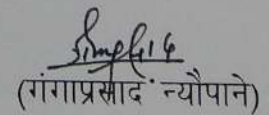 (गंगाप्रसाद न्यौपाने)